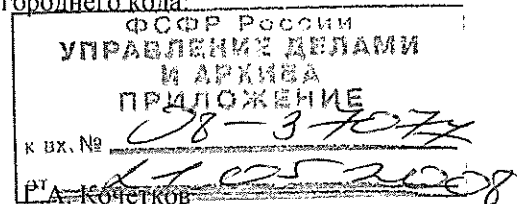 городнего кода:
ФСФР России
УПРАВЛЕНИЕ ДЕЛАМИ
И АРХИВА
ПРИЛОЖЕНИЕ
к вх. № 08-3 7077
от 21.05 2008
Г.А. Кочетков